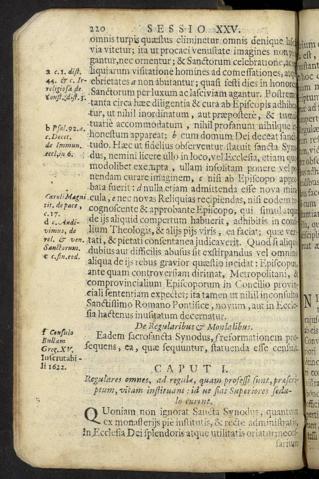 220 SESSIO XXV.
omnis turpis quæstus eliminetur omnis denique lasci-
via vitetur; ita ut procaci venustate imagines non pin-
gantur, nec ornentur; & Sanctorum celebratione, ac re-
liquiarum visitatione homines ad comessationes, atque
ebrietates a non abutantur; quasi festi dies in honorem
Sanctorum per luxum ac lasciviam agantur. Postremo
tanta circa hæc diligentia & cura ab Episcopis adhibea-
tur, ut nihil inordinatum, aut præposterè, & tumul-
tuariè accommodatum, nihil profanum nihilque in-
honestum appareat; b cum domum Dei deceat sancti-
tudo. Hæc ut fidelius observentur statuit sancta Syno-
dus, nemini licere ullo in loco, vel Ecclesia, etiam quo-
modolibet exempta, ullam insolitam ponere vel po-
nendam curare imaginem, c nisi ab Episcopo appro-
bata fuerit: d nulla etiam admittenda esse nova mira-
cula, e nec novas Reliquias recipiendas, nisi eodem re-
cognoscente & approbante Episcopo, qui simul atque
de ijs aliquid compertum habuerit, adhibitis in consi-
lium Theologis, & alijs pijs viris, ea faciat, quæ veri-
tati, & pietati consentanea judicaverit. Quod si aliquis
dubius aut difficilis abusus sit exstirpandus vel omnino
aliqua de ijs rebus gravior quæstio incidat: Episcopus
ante quam controversiam dirimat, Metropolitani, &
comprovincialium Episcoporum in Concilio provin-
ciali sententiam expectet; ita tamen ut nihil inconsulto
Sanctissimo Romano Pontifice, novum, aut in Eccle-
sia hactenus inusitatum decernatur.
a c. 1. dist.
44. & c. Ir-
religiosa de
Const. dist. 3.
b Psal. 92. a.
c. Decet.
de immun.
eccl. in 6.
c
Caroli Magni
tit. de pace,
c. 17.
d c. Audi-
vimus, de
rel. & ven.
Sanctorum.
e c. fin. eod.
De Regularibus & Monialibus.
Eadem sacrosancta Synodus, f reformationem pro-
sequens, ea, quæ sequuntur, statuenda esse censuit.
f Consule
Bullam
Greg. XV.
Inscrutabi-
li 1622.
CAPUT I.
Regulares omnes, ad regulæ, quam professi sunt, præscri-
ptum, vitam instituant: id ut fiat Superiores sedu-
lo curent.
QUoniam non ignorat Sancta Synodus, quantum
ex monasterijs pie institutis, & recte administratis,
In Ecclesia Dei splendoris atque utilitatis oriatur; neces-
sarium